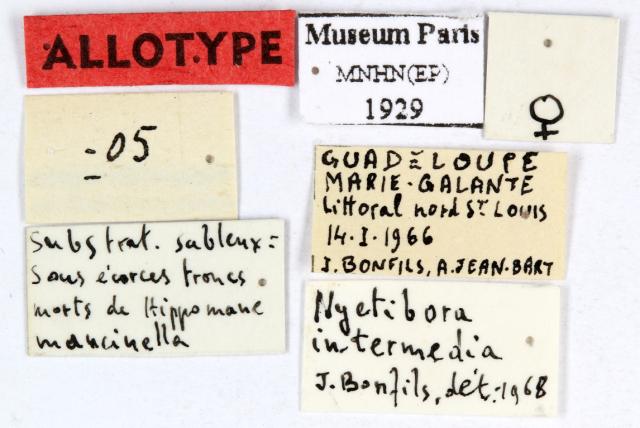 ALLOTYPE
Museum Paris
MNHN(EP)
1929
♀
-05
GUADELOUPE
MARIE-GALANTE
Littoral nord St LOUIS
14.I.1966
J. BONFILS, A. JEAN-BART
Substrat. sableux =
Sous écorces troncs
morts de Hippomane
mancinella
Nyctibora
intermedia
J. Bonfils, dét. 1968